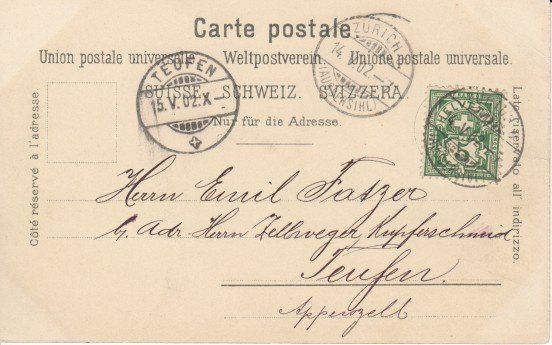 Carte postale.
Union postale universelle. Weltpostverein. Unione postale universale.
SUISSE. SCHWEIZ. SVIZZERA.
Nur für die Adresse.
Côté réservé à l'adresse.
Lato riservato all' indirizzo.
TEUFEN
15.V.02.X
ZÜRICH
14.V.02.
(AUSSERSIHL)
HELVETIA
Herrn Emil Fatzer
b/ Adr. Herrn Zellweger Kupferschmied
Teufen.
Appenzell